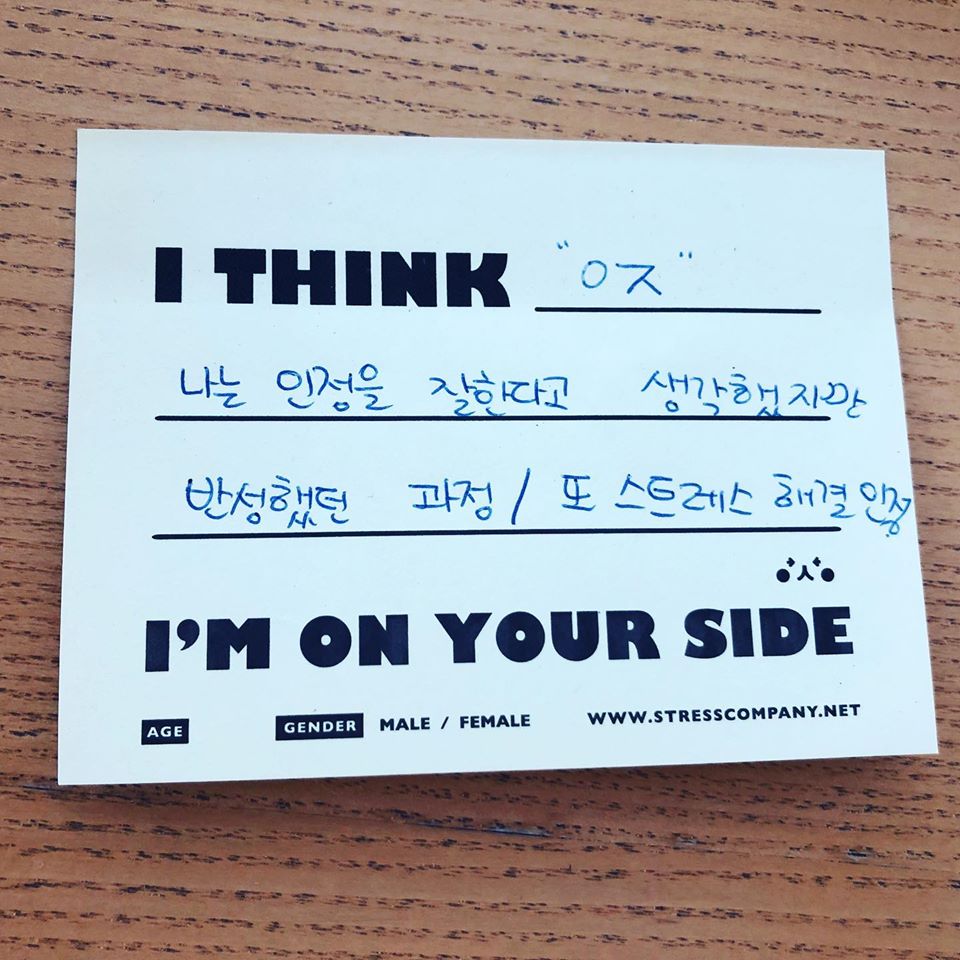 I THINK "ㅇㅈ"
나는 인정을 잘한다고 생각했지만
반성했던 과정 / 또 스트레스 해결 인정
I'M ON YOUR SIDE
AGE GENDER MALE / FEMALE WWW.STRESSCOMPANY.NET